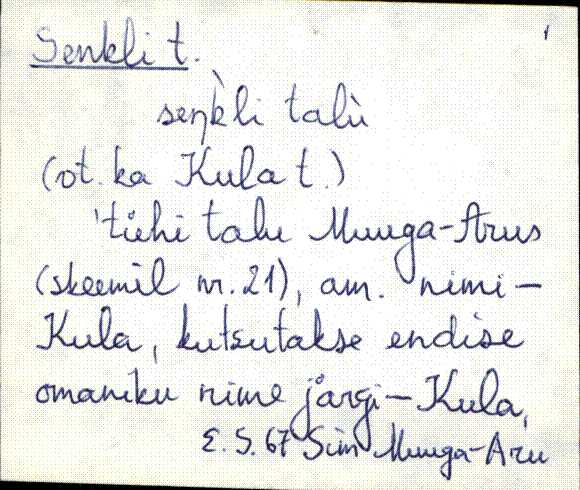 Senkli t.
seŋk̀li talù
(vt. ka Kula t.)
'tühi talu Muuga-Arus
(skeemil nr. 21), am. nimi -
Kula, kutsutakse endise
omaniku nime järgi - Kula,
E. S. 67 Sim Muuga-Aru